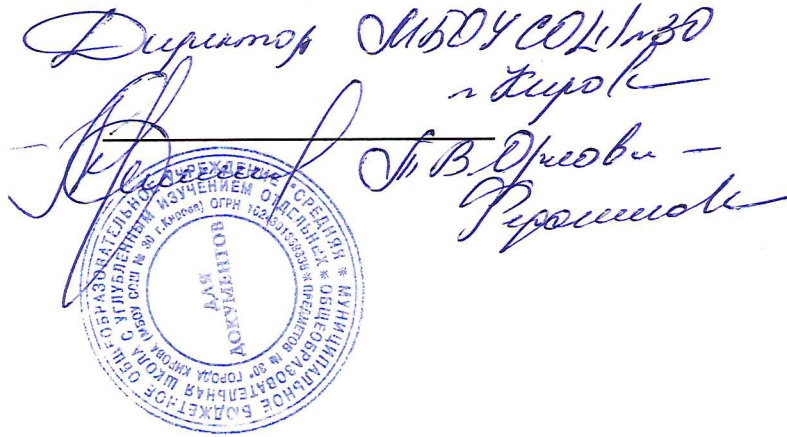 Директор МБОУ СОШ №30
г. Киров
Т В Орлова –
МУНИЦИПАЛЬНОЕ БЮДЖЕТНОЕ ОБЩЕОБРАЗОВАТЕЛЬНОЕ УЧРЕЖДЕНИЕ "СРЕДНЯЯ *
ОБЩЕОБРАЗОВАТЕЛЬНАЯ ШКОЛА С УГЛУБЛЕННЫМ ИЗУЧЕНИЕМ ОТДЕЛЬНЫХ *
ПРЕДМЕТОВ № 30" ГОРОДА КИРОВА (МБОУ СОШ № 30 г.Кирова) ОГРН
ДЛЯ
ДОКУМЕНТОВ